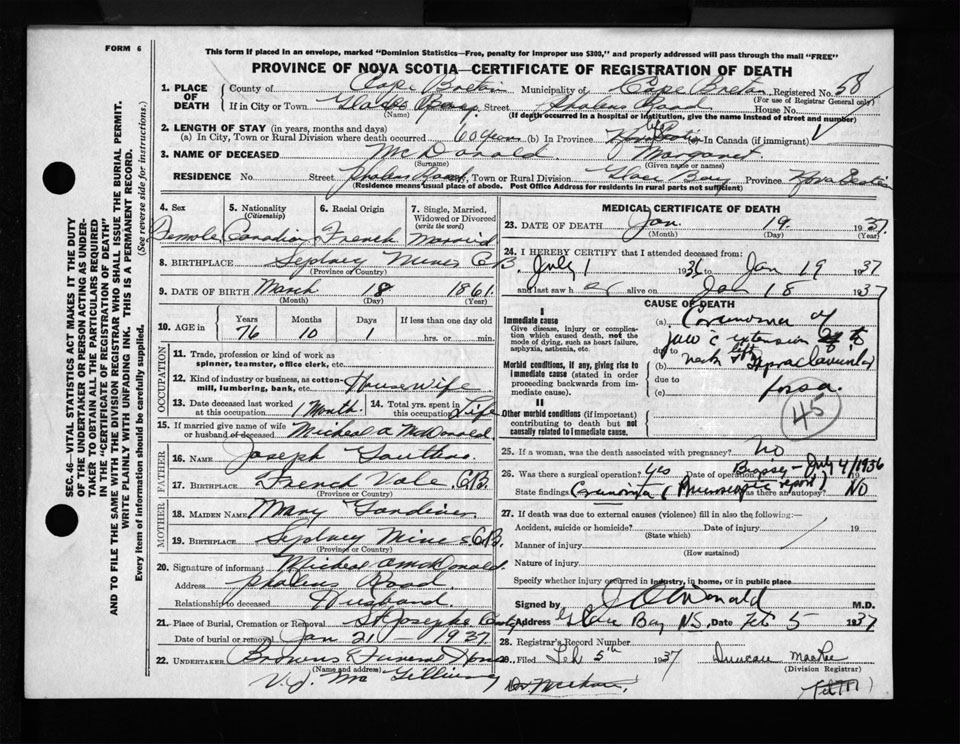 FORM 6
This form if placed in an envelope, marked "Dominion Statistics—Free, penalty for improper use $300," and properly addressed will pass through the mail "FREE"
PROVINCE OF NOVA SCOTIA—CERTIFICATE OF REGISTRATION OF DEATH
SEC. 46—VITAL STATISTICS ACT MAKES IT THE DUTY
OF THE UNDERTAKER OR PERSON ACTING AS UNDER-
TAKER TO OBTAIN ALL THE PARTICULARS REQUIRED
IN THE "CERTIFICATE OF REGISTRATION OF DEATH"
AND TO FILE THE SAME WITH THE DIVISION REGISTRAR WHO SHALL ISSUE THE BURIAL PERMIT.
WRITE PLAINLY WITH UNFADING INK. THIS IS A PERMANENT RECORD.
Every item of information should be carefully supplied. (See reverse side for instructions.)
1. PLACE OF DEATH County of Cape Breton Municipality of Cape Breton Registered No. 58
(For use of Registrar General only)
If in City or Town Glace Bay Street Phalens Road House No.
(Name) (If death occurred in a hospital or institution, give the name instead of street and number)
2. LENGTH OF STAY (in years, months and days)
(a) In City, Town or Rural Division where death occurred 60 years (b) In Province (c) In Canada (if immigrant)
3. NAME OF DECEASED McDonald Margaret
(Surname) (Given name or names)
RESIDENCE No. Street Phalens Road, City, Town or Rural Division Glace Bay Province Nova Scotia
(Residence means usual place of abode. Post Office Address for residents in rural parts not sufficient)
4. Sex 5. Nationality (Citizenship) 6. Racial Origin 7. Single, Married, Widowed or Divorced (write the word)
Female Canadian French Married
8. BIRTHPLACE Sydney Mines C.B.
(Province or Country)
9. DATE OF BIRTH March 18 1861
(Month) (Day) (Year)
10. AGE in Years Months Days If less than one day old
76 10 1 hrs. or min.
OCCUPATION
11. Trade, profession or kind of work as spinner, teamster, office clerk, etc.
12. Kind of industry or business, as cotton-mill, lumbering, bank, etc. Housewife
13. Date deceased last worked at this occupation 1 Month 14. Total yrs. spent in this occupation Life
15. If married give name of wife or husband of deceased Micheal A McDonald
FATHER
16. NAME Joseph
17. BIRTHPLACE French Vale C.B.
(Province or Country)
MOTHER
18. MAIDEN NAME Mary
19. BIRTHPLACE Sydney Mines C.B.
(Province or Country)
20. Signature of informant Micheal A McDonald
Address Phalens Road
Relationship to deceased Husband
21. Place of Burial, Cremation or Removal St Josephs
Date of burial or removal Jan 21 — 1937
22. UNDERTAKER Browns Funeral Home
(Name and address)
V. J. Mc
MEDICAL CERTIFICATE OF DEATH
23. DATE OF DEATH Jan 19 1937
(Month) (Day) (Year)
24. I HEREBY CERTIFY that I attended deceased from:
July 1 1936 to Jan 19 1937
and last saw her alive on Jan 18 1937
CAUSE OF DEATH
I
Immediate cause
Give disease, injury or complication which caused death, not the mode of dying, such as heart failure, asphyxia, asthenia, etc.
Morbid conditions, if any, giving rise to immediate cause (stated in order proceeding backwards from immediate cause).
II
Other morbid conditions (if important) contributing to death but not causally related to immediate cause.
(a) Carcinoma of
jaw c extension
due to
(b) neck supraclavicular
due to
(c) fossa.
45
25. If a woman, was the death associated with pregnancy? No
26. Was there a surgical operation? Yes Date of operation Biopsy — July 4/1936
State findings Carcinoma (Microscopic report) Was there an autopsy? No
27. If death was due to external causes (violence) fill in also the following:—
Accident, suicide or homicide? Date of injury 19
(State which)
Manner of injury
(How sustained)
Nature of injury
Specify whether injury occurred in industry, in home, or in public place
Signed by McDonald M.D.
Address Glace Bay N.S. Date Feb 5 1937
28. Registrar's Record Number
29. Filed Feb 5th 1937 Duncan
(Division Registrar)